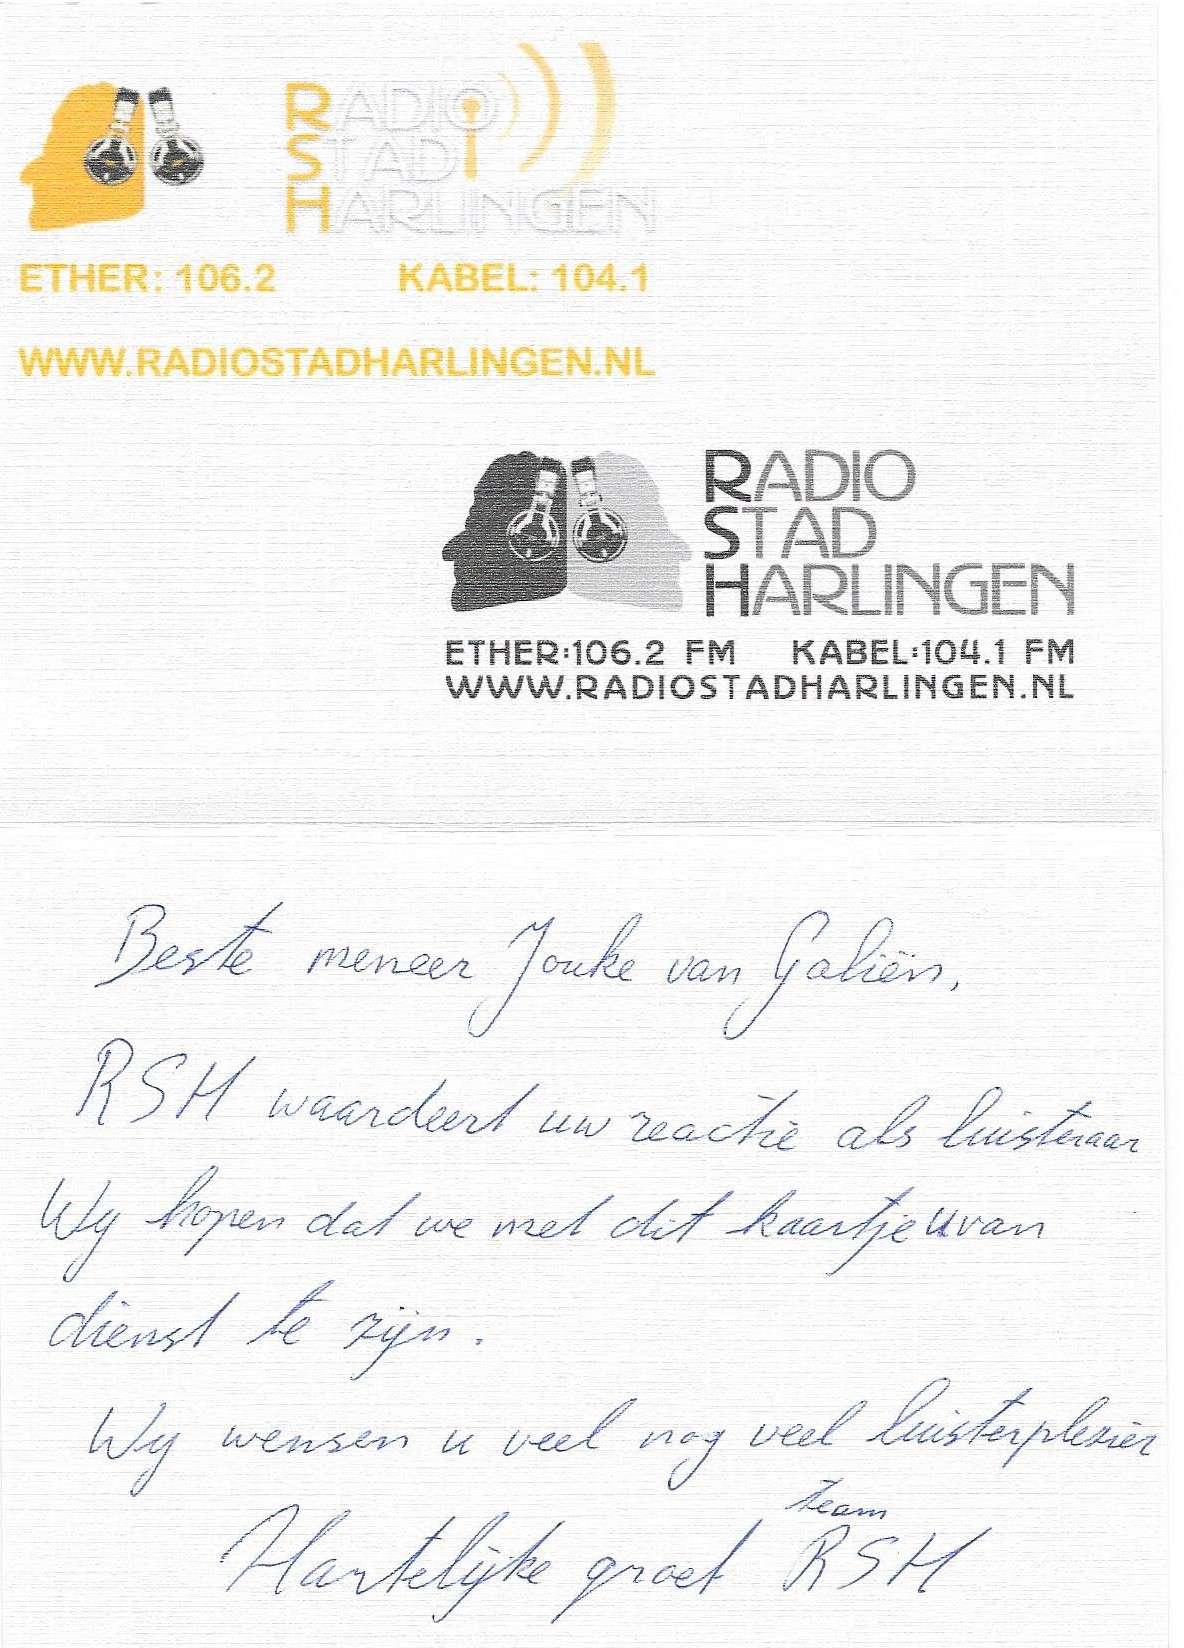 RADIO
STAD
HARLINGEN
ETHER: 106.2 KABEL: 104.1
WWW.RADIOSTADHARLINGEN.NL
RADIO
STAD
HARLINGEN
ETHER:106.2 FM KABEL:104.1 FM
WWW.RADIOSTADHARLINGEN.NL
Beste meneer Jouke van Galiën,
RSH waardeert uw reactie als luisteraar
Wy hopen dat we met dit kaartje u van
dienst te zijn.
Wy wensen u veel nog veel luisterplezier
Hartelijke groet team RSH